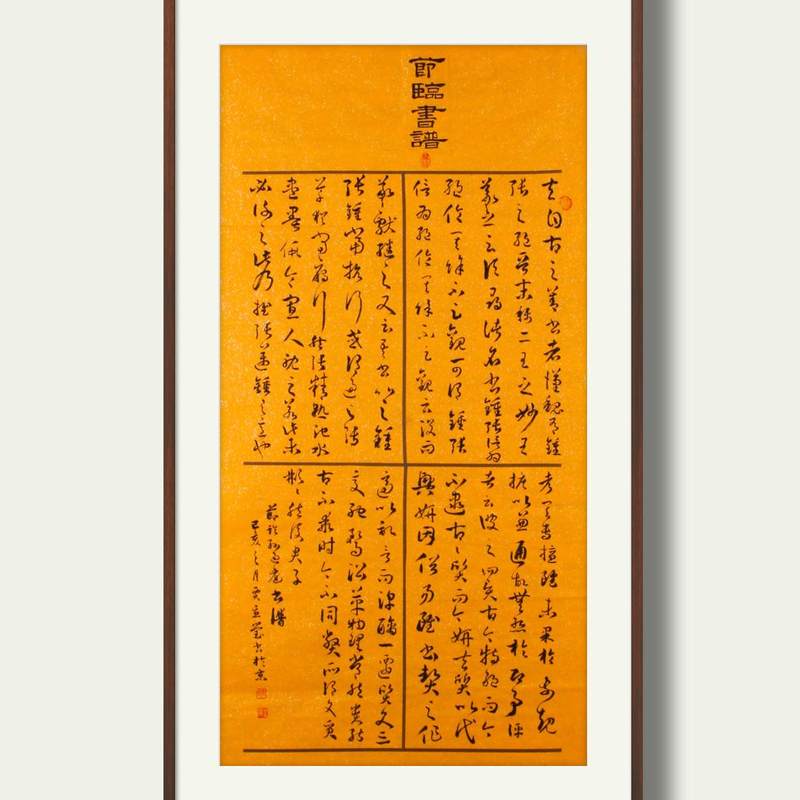 節臨書譜
夫自古之善書者漢魏有鍾
張之絕晉末稱二王之妙王
羲之云頃尋諸名書鍾張信為
絕倫其餘不足觀可謂鍾張
信為絕倫其餘不足觀云沒而
羲獻繼之又云吾書比之鍾
張鍾當抗行或謂過之張
草猶當雁行然張精熟池水
盡墨假令寡人耽之若此未
必謝之此乃推張邁鍾之意也
考其專擅雖未果於前規
摭以兼通故無慚於即事評
者云彼之四賢古今特絕而今
不逮古〻質而今妍夫質以代
興妍因俗易雖書契之作
適以記言而淳醨一遷質文三
變馳騖沿革物理常然貴能
古不乖時今不同弊所謂文質
彬〻然後君子
節臨孫過庭書譜
己亥 月 書於京